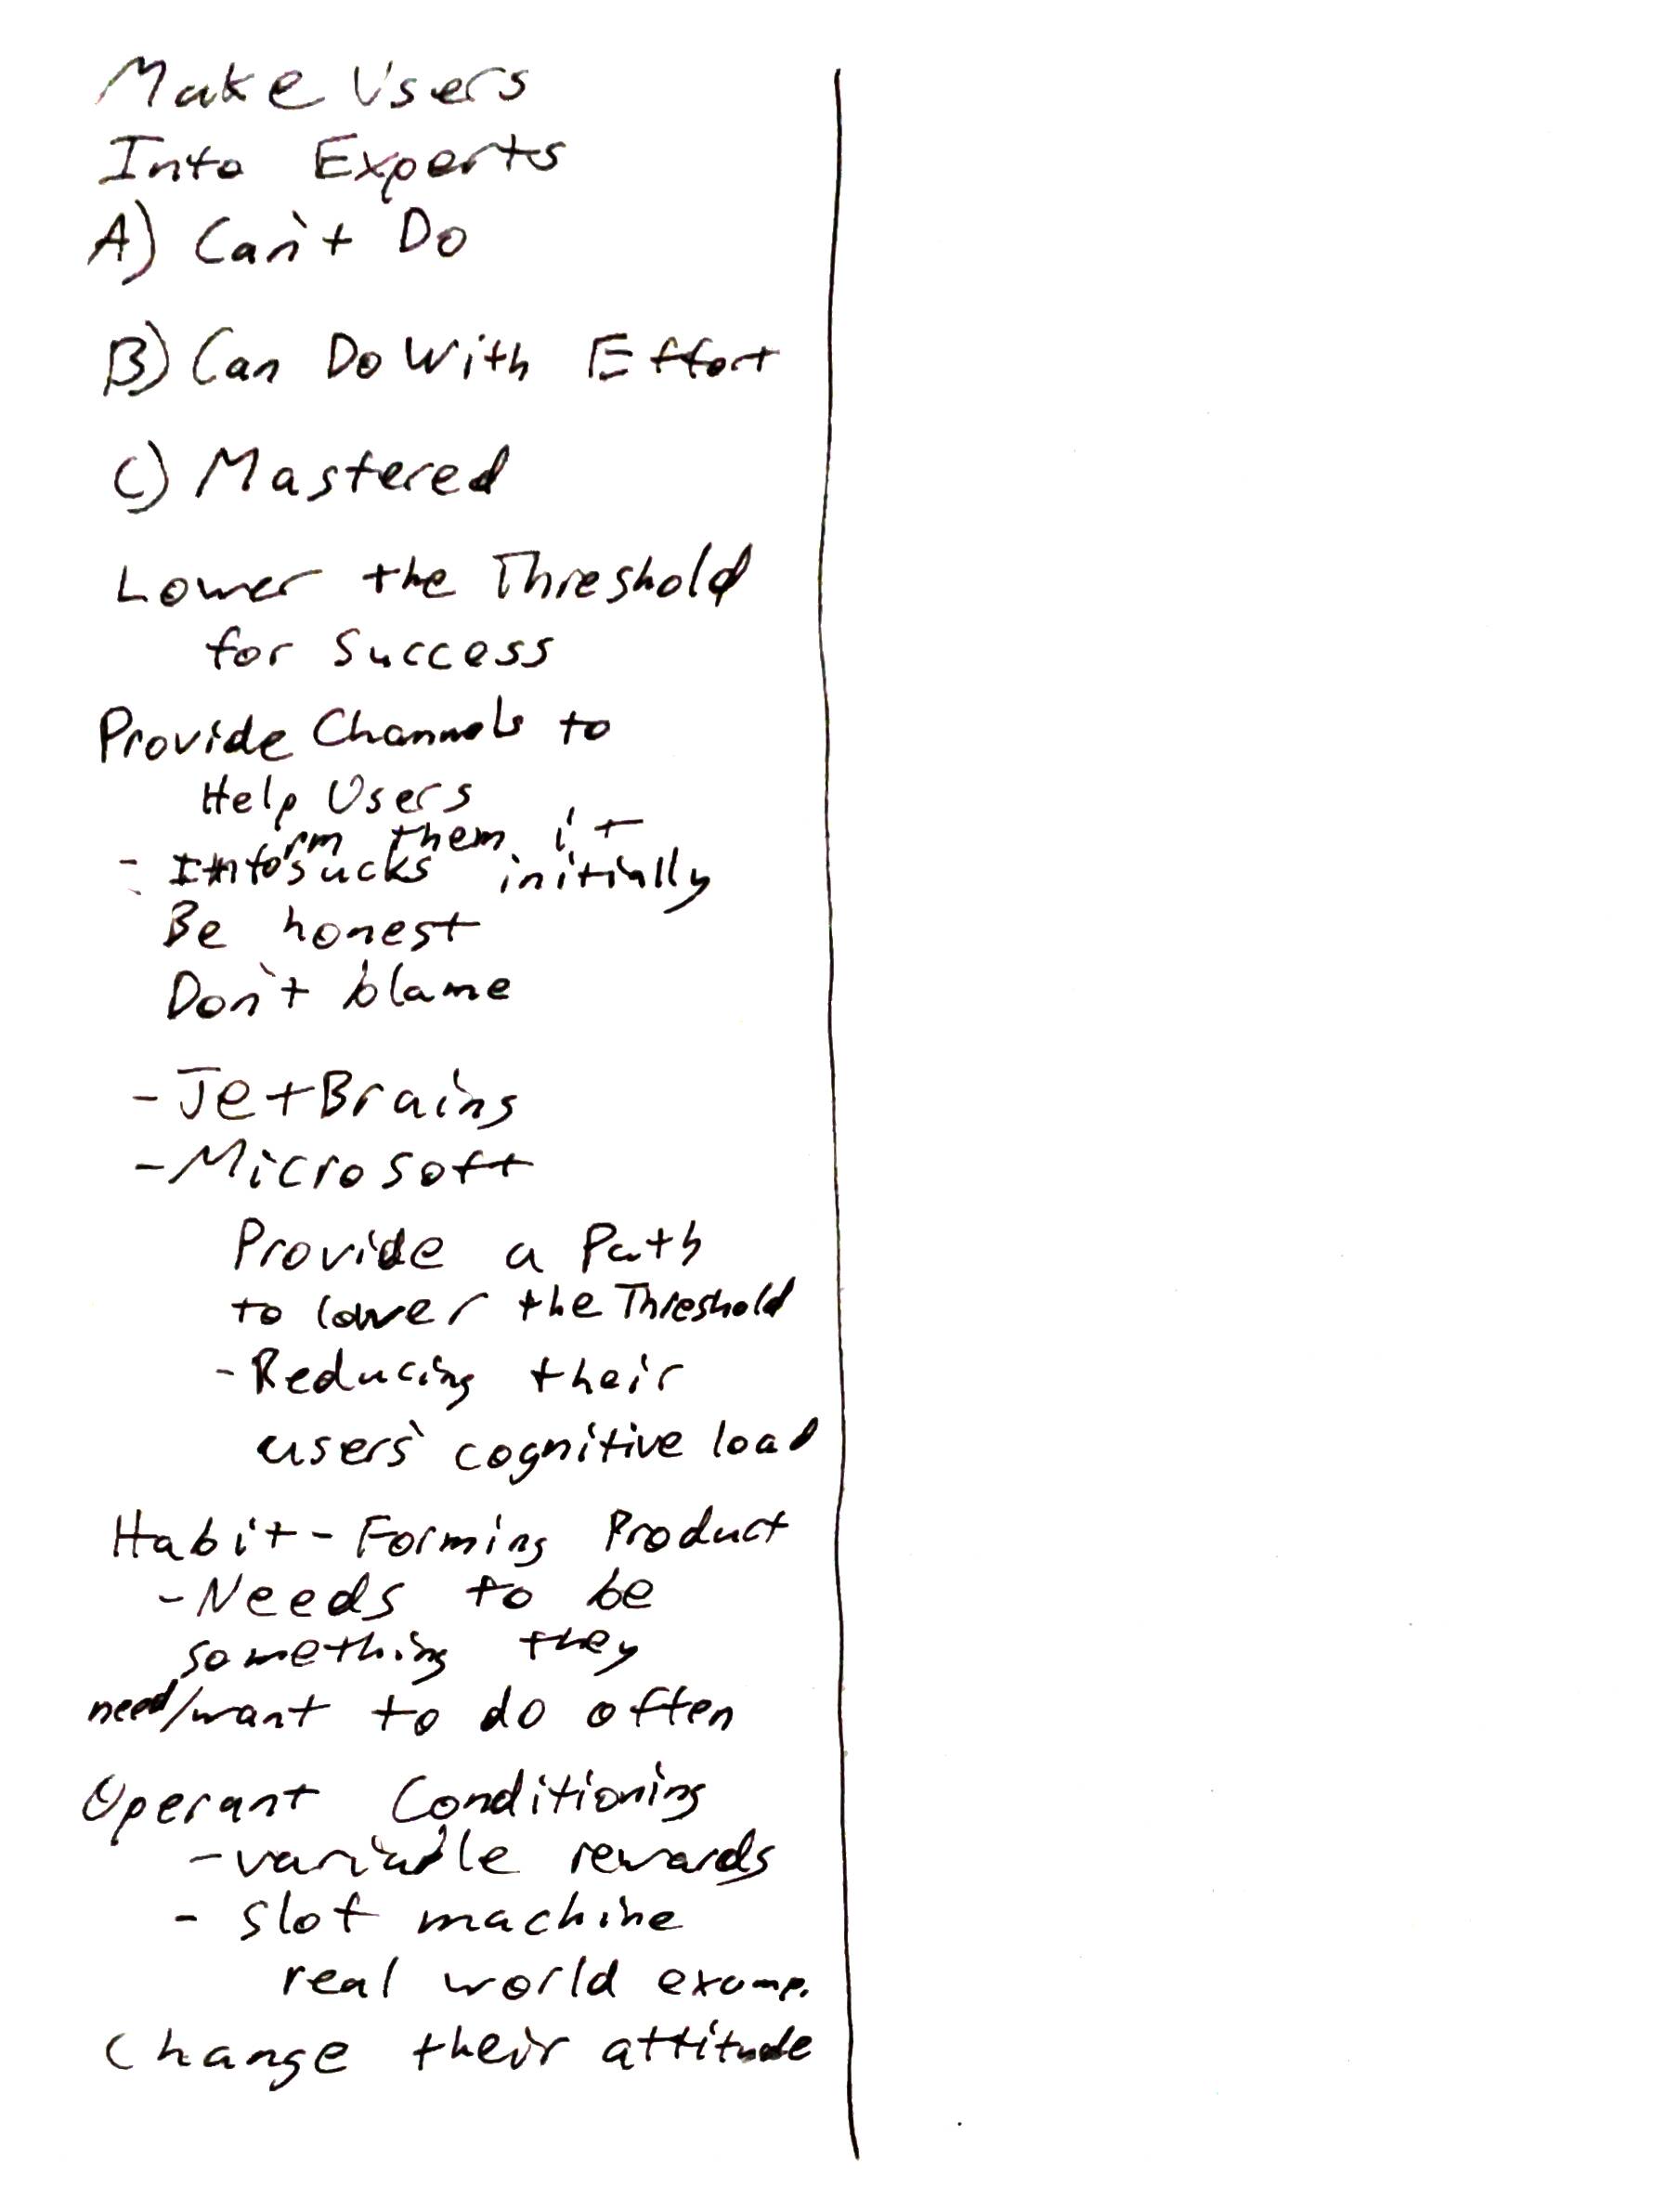 Make Users
Into Experts
A) Can't Do
B) Can Do With Effort
C) Mastered
Lower the Threshold
for Success
Provide Channels to
Help Users
- Inform them it
sucks initially
Be honest
Don't blame
- JetBrains
- Microsoft
Provide a Path
to lower the Threshold
- Reducing their
users' cognitive load
Habit-Forming Product
- Needs to be
something they
need/want to do often
Operant Conditioning
- variable rewards
- slot machine
real world examp.
Change their attitude